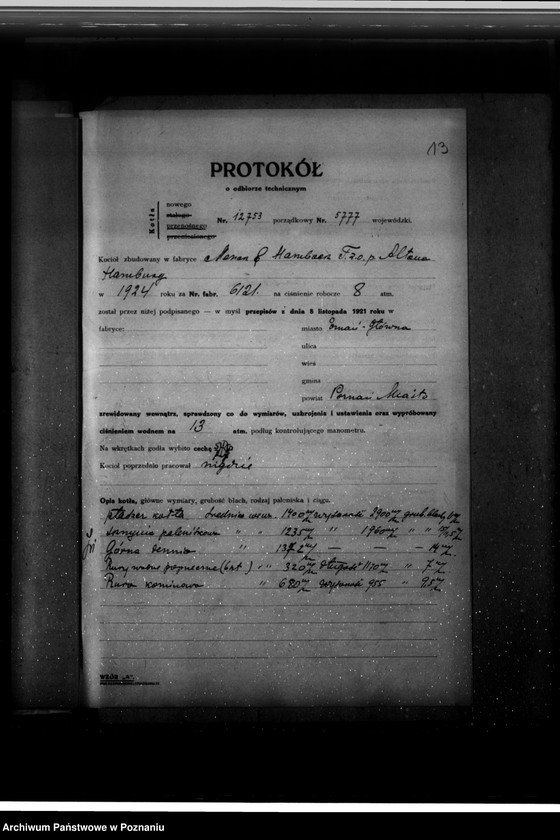 13
PROTOKÓŁ
o odbiorze technicznym
Kotła
nowego
stałego
przenośnego
przewoźnego
Nr. 12753 porządkowy Nr. 5777 wojewódzki.
Kocioł zbudowany w fabryce Menck & Hambrock T.z.o.p Altona
Hamburg
w 1924 roku za Nr. fabr. 6121. na ciśnienie robocze 8 atm.
został przez niżej podpisanego — w myśl przepisów z dnia 8 listopada 1921 roku w
fabryce: miasto Poznań-Główna
ulica
wieś
gmina
powiat Poznań Miasto
zrewidowany wewnątrz, sprawdzony co do wymiarów, uzbrojenia i ustawienia oraz wypróbowany
ciśnieniem wodnem na 13 atm. podług kontrolującego manometru.
Na wkrętkach godła wybito cechę
Kocioł poprzednio pracował nigdzie
Opis kotła, główne wymiary, grubość blach, rodzaj paleniska i ciągu.
płaszcz kotła średnica wewn. 1400 wysokość 2900 grub. blachy
ścianka paleniskowa " " 1235 " 1960 "
Górna dennica " 1372 — — — 14
Rury wodne poprzeczne " " 320 długość 1120 " 7
Rura kominowa " 680 wysokość 955 " 9.5
WZÓR „A".